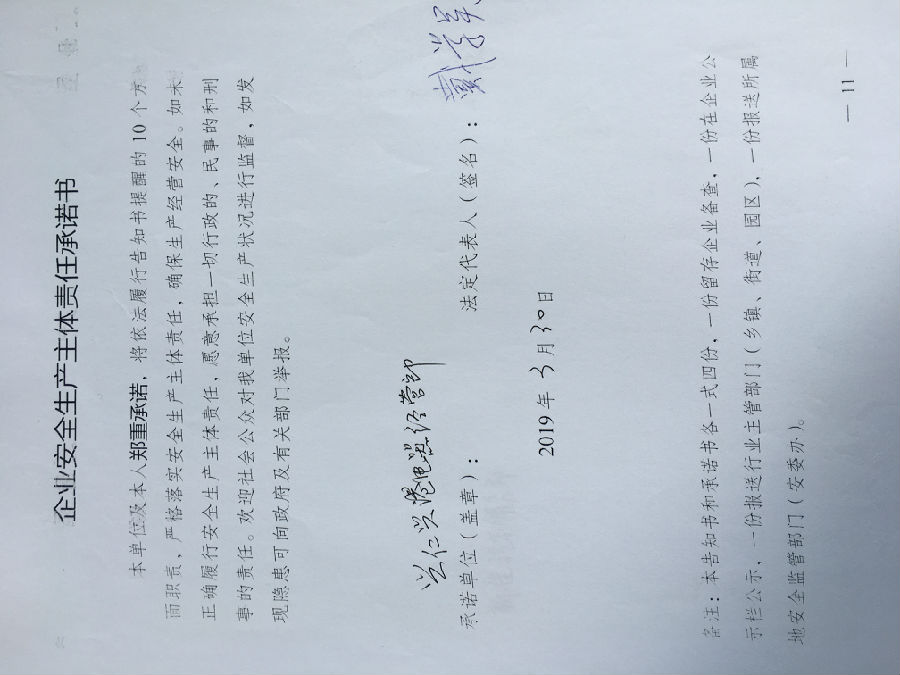 企业安全生产主体责任承诺书
本单位及本人郑重承诺，将依法履行告知书提醒的 10 个方
面职责、严格落实安全生产主体责任，确保生产经营安全。如未
正确履行安全生产主体责任，愿意承担一切行政的、民事的和刑
事的责任。欢迎社会公众对我单位安全生产状况进行监督，如发
现隐患可向政府及有关部门举报。
经营部
承诺单位（盖章）： 法定代表人（签名）：戴
2019 年 3 月 30 日
备注：本告知书和承诺书各一式四份，一份留存企业备查，一份在企业公
示栏公示、一份报送行业主管部门（乡镇、街道、园区），一份报送所属
地安全监管部门（安委办）。
— 11 —